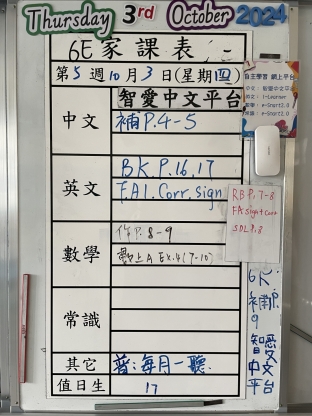 Thursday 3rd October 2024
6E 家課表
第 5 週 10 月 3 日(星期四)
智愛中文平台
中文
補 P.4-5
英文
BK. P.16,17
F.A1. Corr. sign
數學
作P.8-9
上A EX.4(7-10)
常識
其它
普:每月一聽.
值日生
17
自主學習 網上平台
中文:智愛中文平台
英文:i-Learner
數學:e-Smart2.0
常識:e-Smart2.0
RB P.7-8
FA sign+corr
SDL P.8
補
智愛
中文
平台